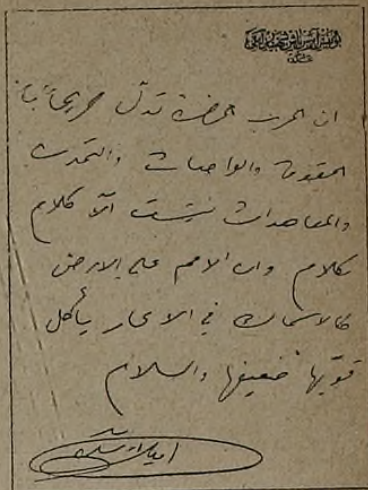 ان الحرب الحاضرة تدل صريحاً بان
الحقوق والواجبات والتمدن
والمعاهدات ليست الا كلام
بكلام وان الامم على الارض
كالاسماك في الابحار يأكل
قويها ضعيفها والسلام